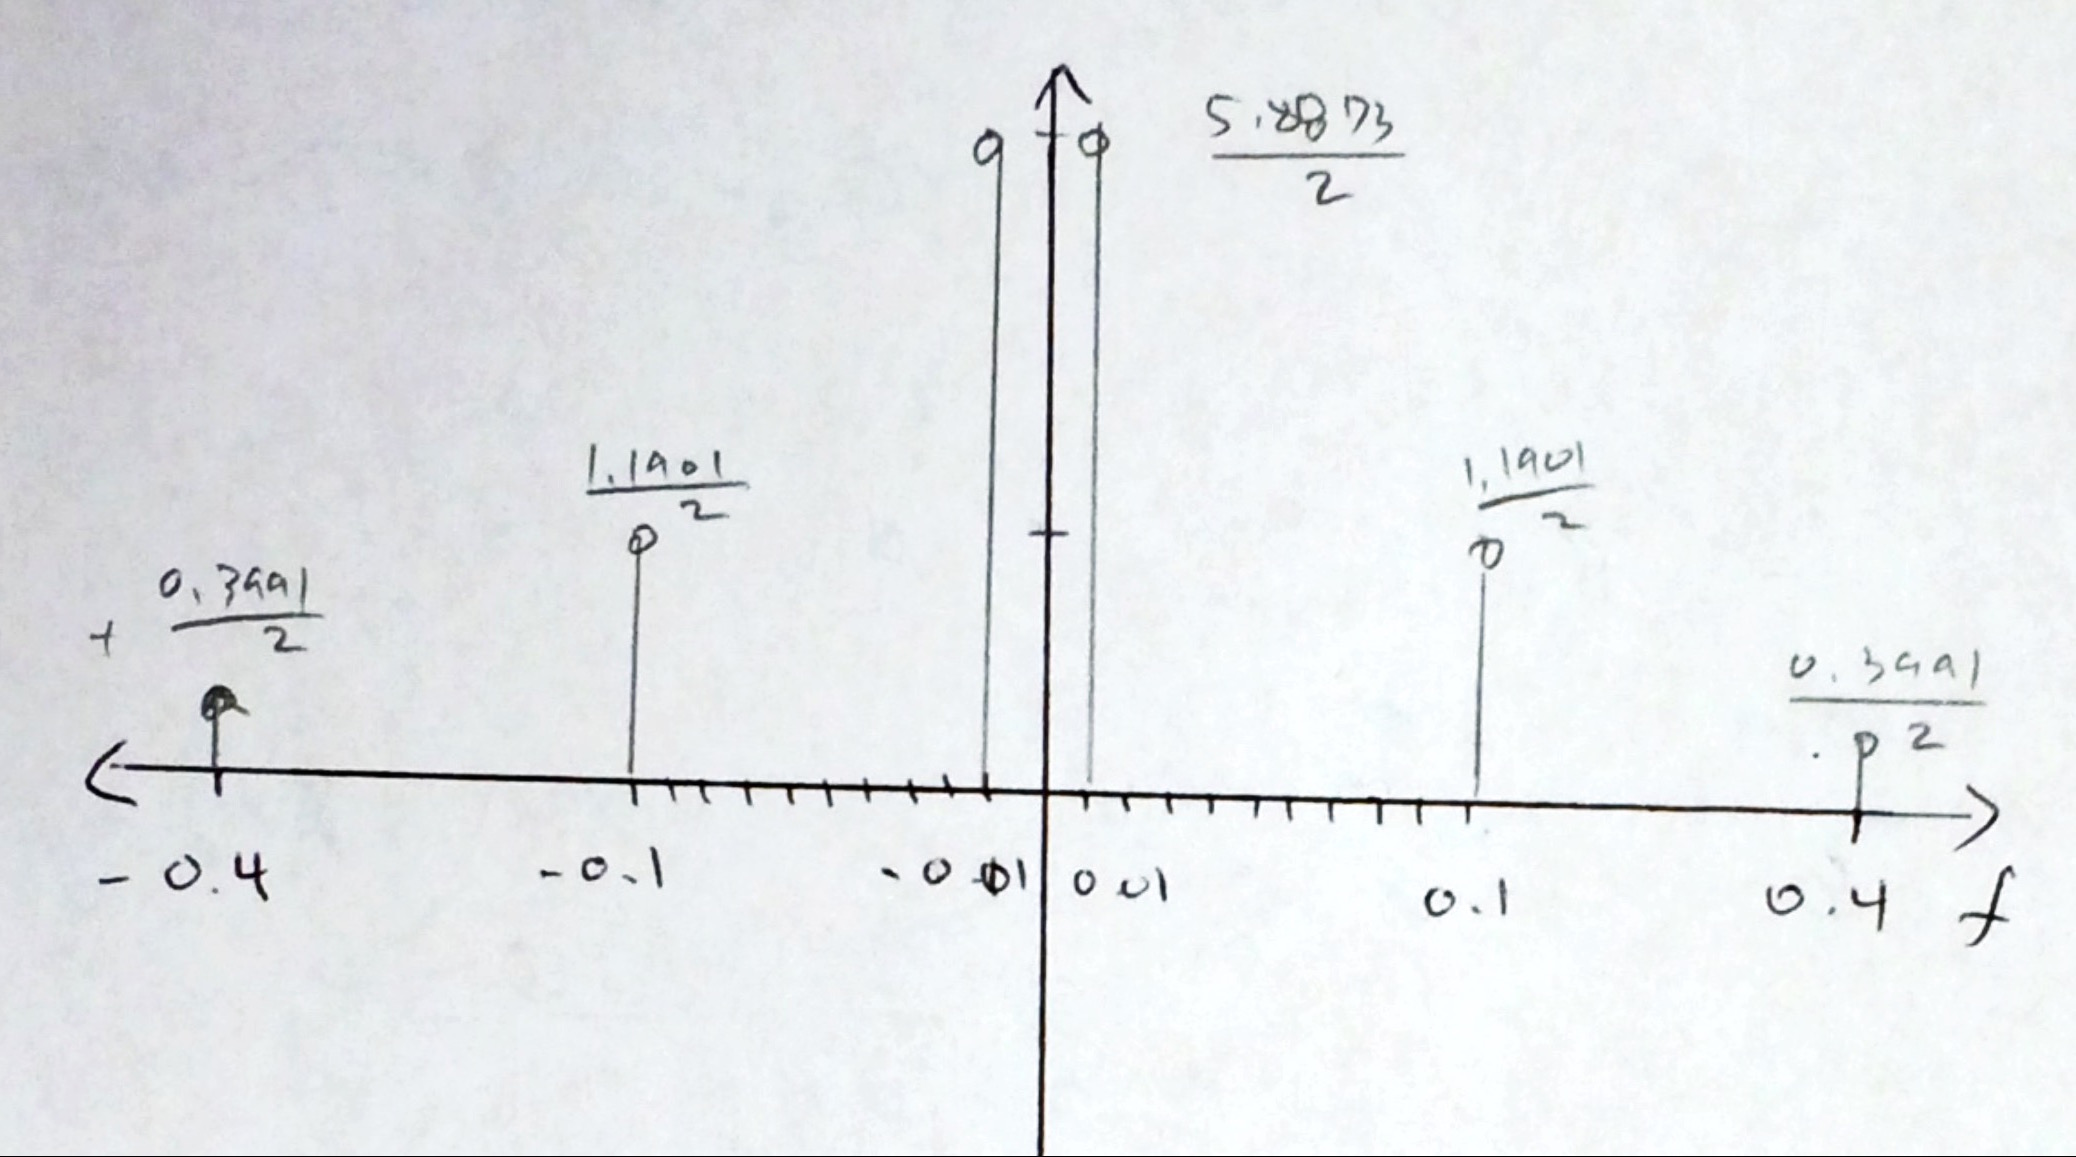 5.8873
2
1.1901
2
1.1901
2
0.3991
+ 2
0.3991
2
- 0.4 - 0.1 - 0.01 0.01 0.1 0.4 f